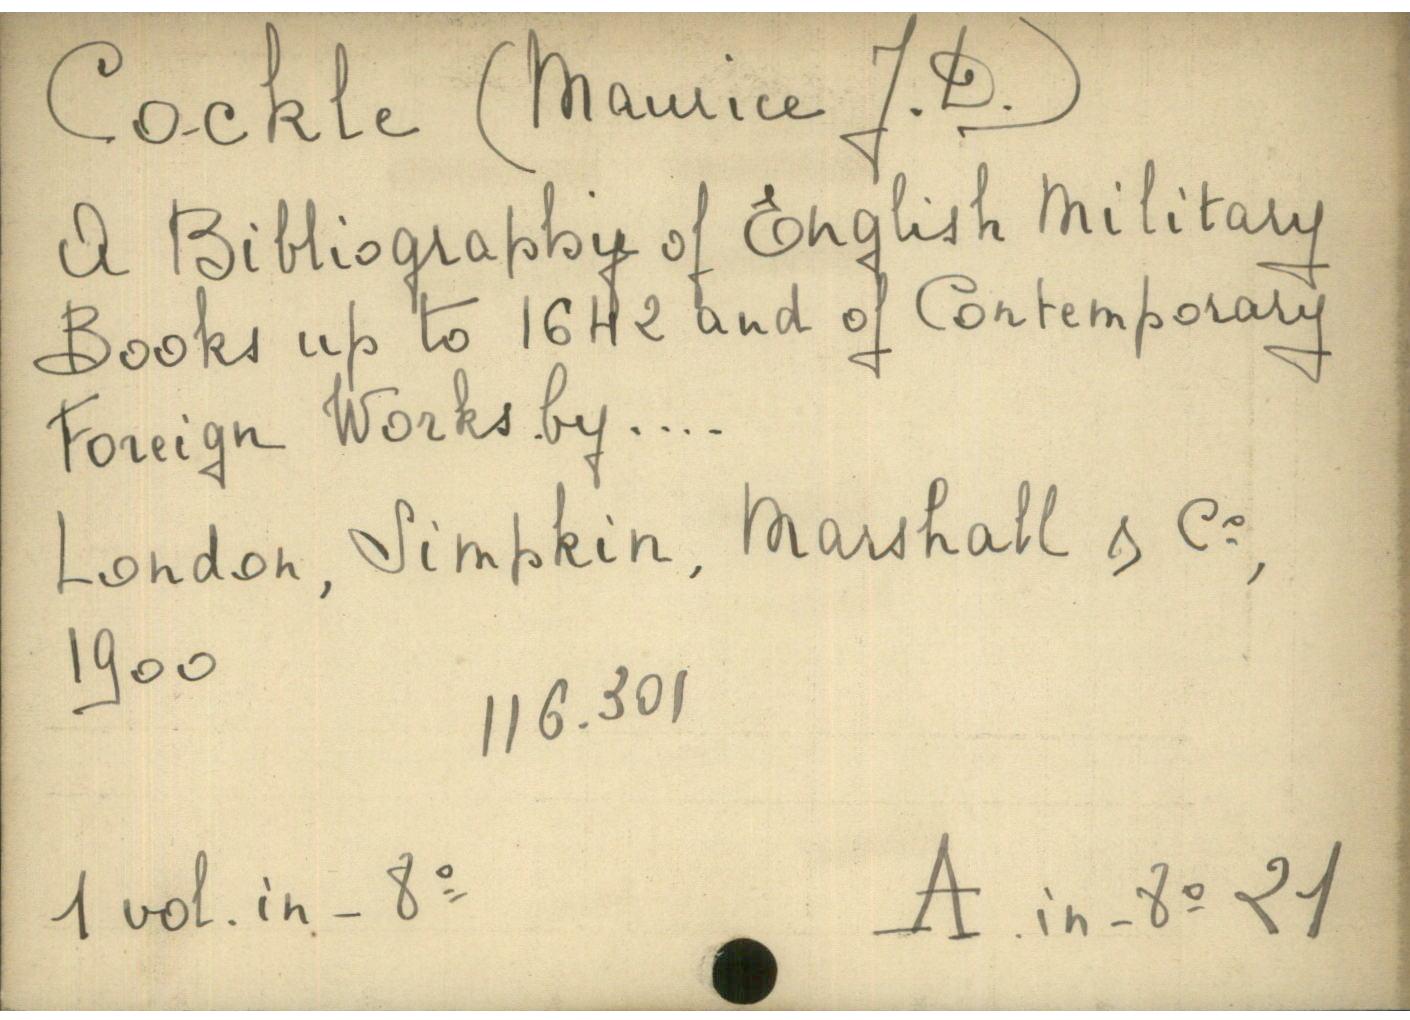 Cockle (Maurice J.D.)
A Bibliography of English Military
Books up to 1642 and of Contemporary
Foreign Works by....
London, Simpkin, Marshall & Cº,
1900
116.301
1 vol. in-8º
A in-8º 21